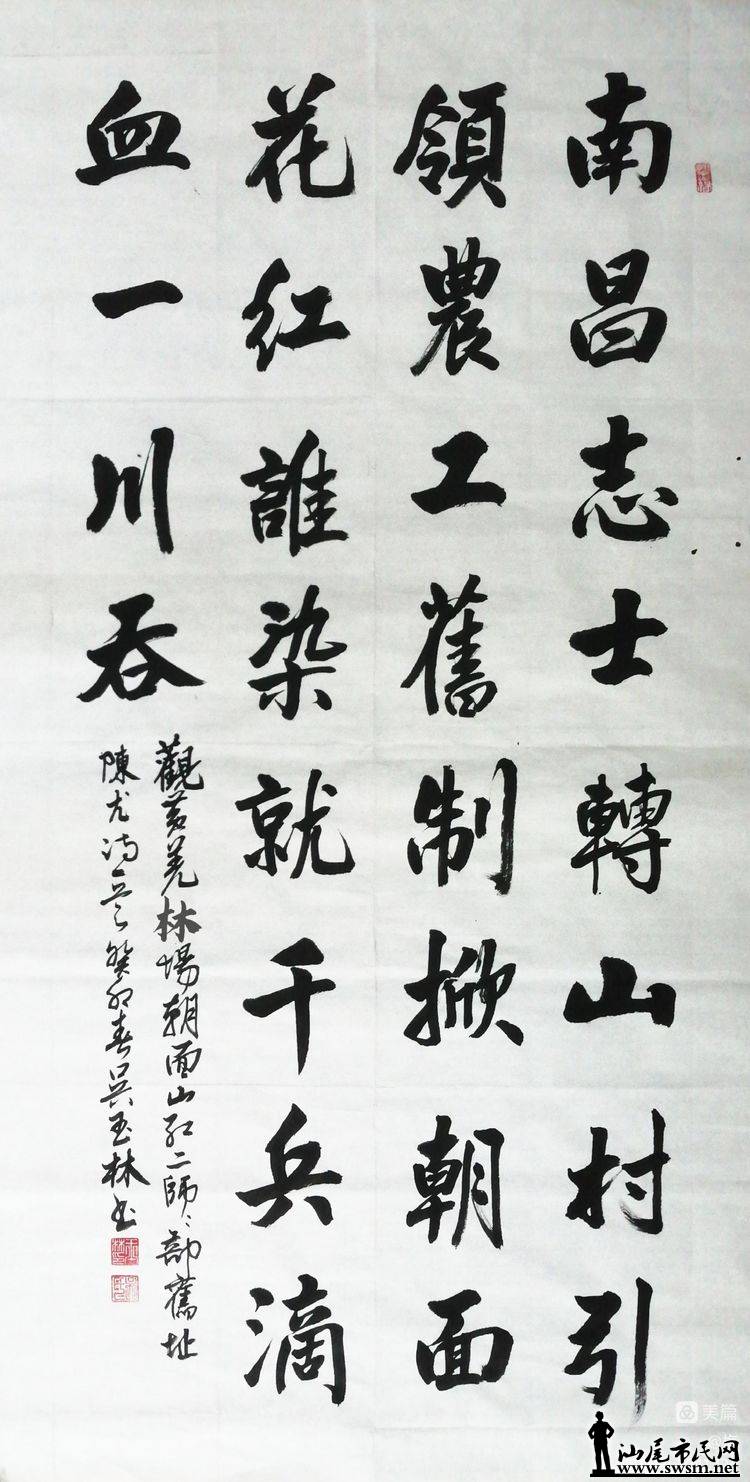 南昌志士轉山村引
領農工舊制掀朝面
花红誰染就千兵滴
血一川吞
觀黃羌林場朝面山紅二師師部舊址
陳尤鴻詩 癸卯春吳玉林書
美篇
汕尾市民网
www.swsm.net